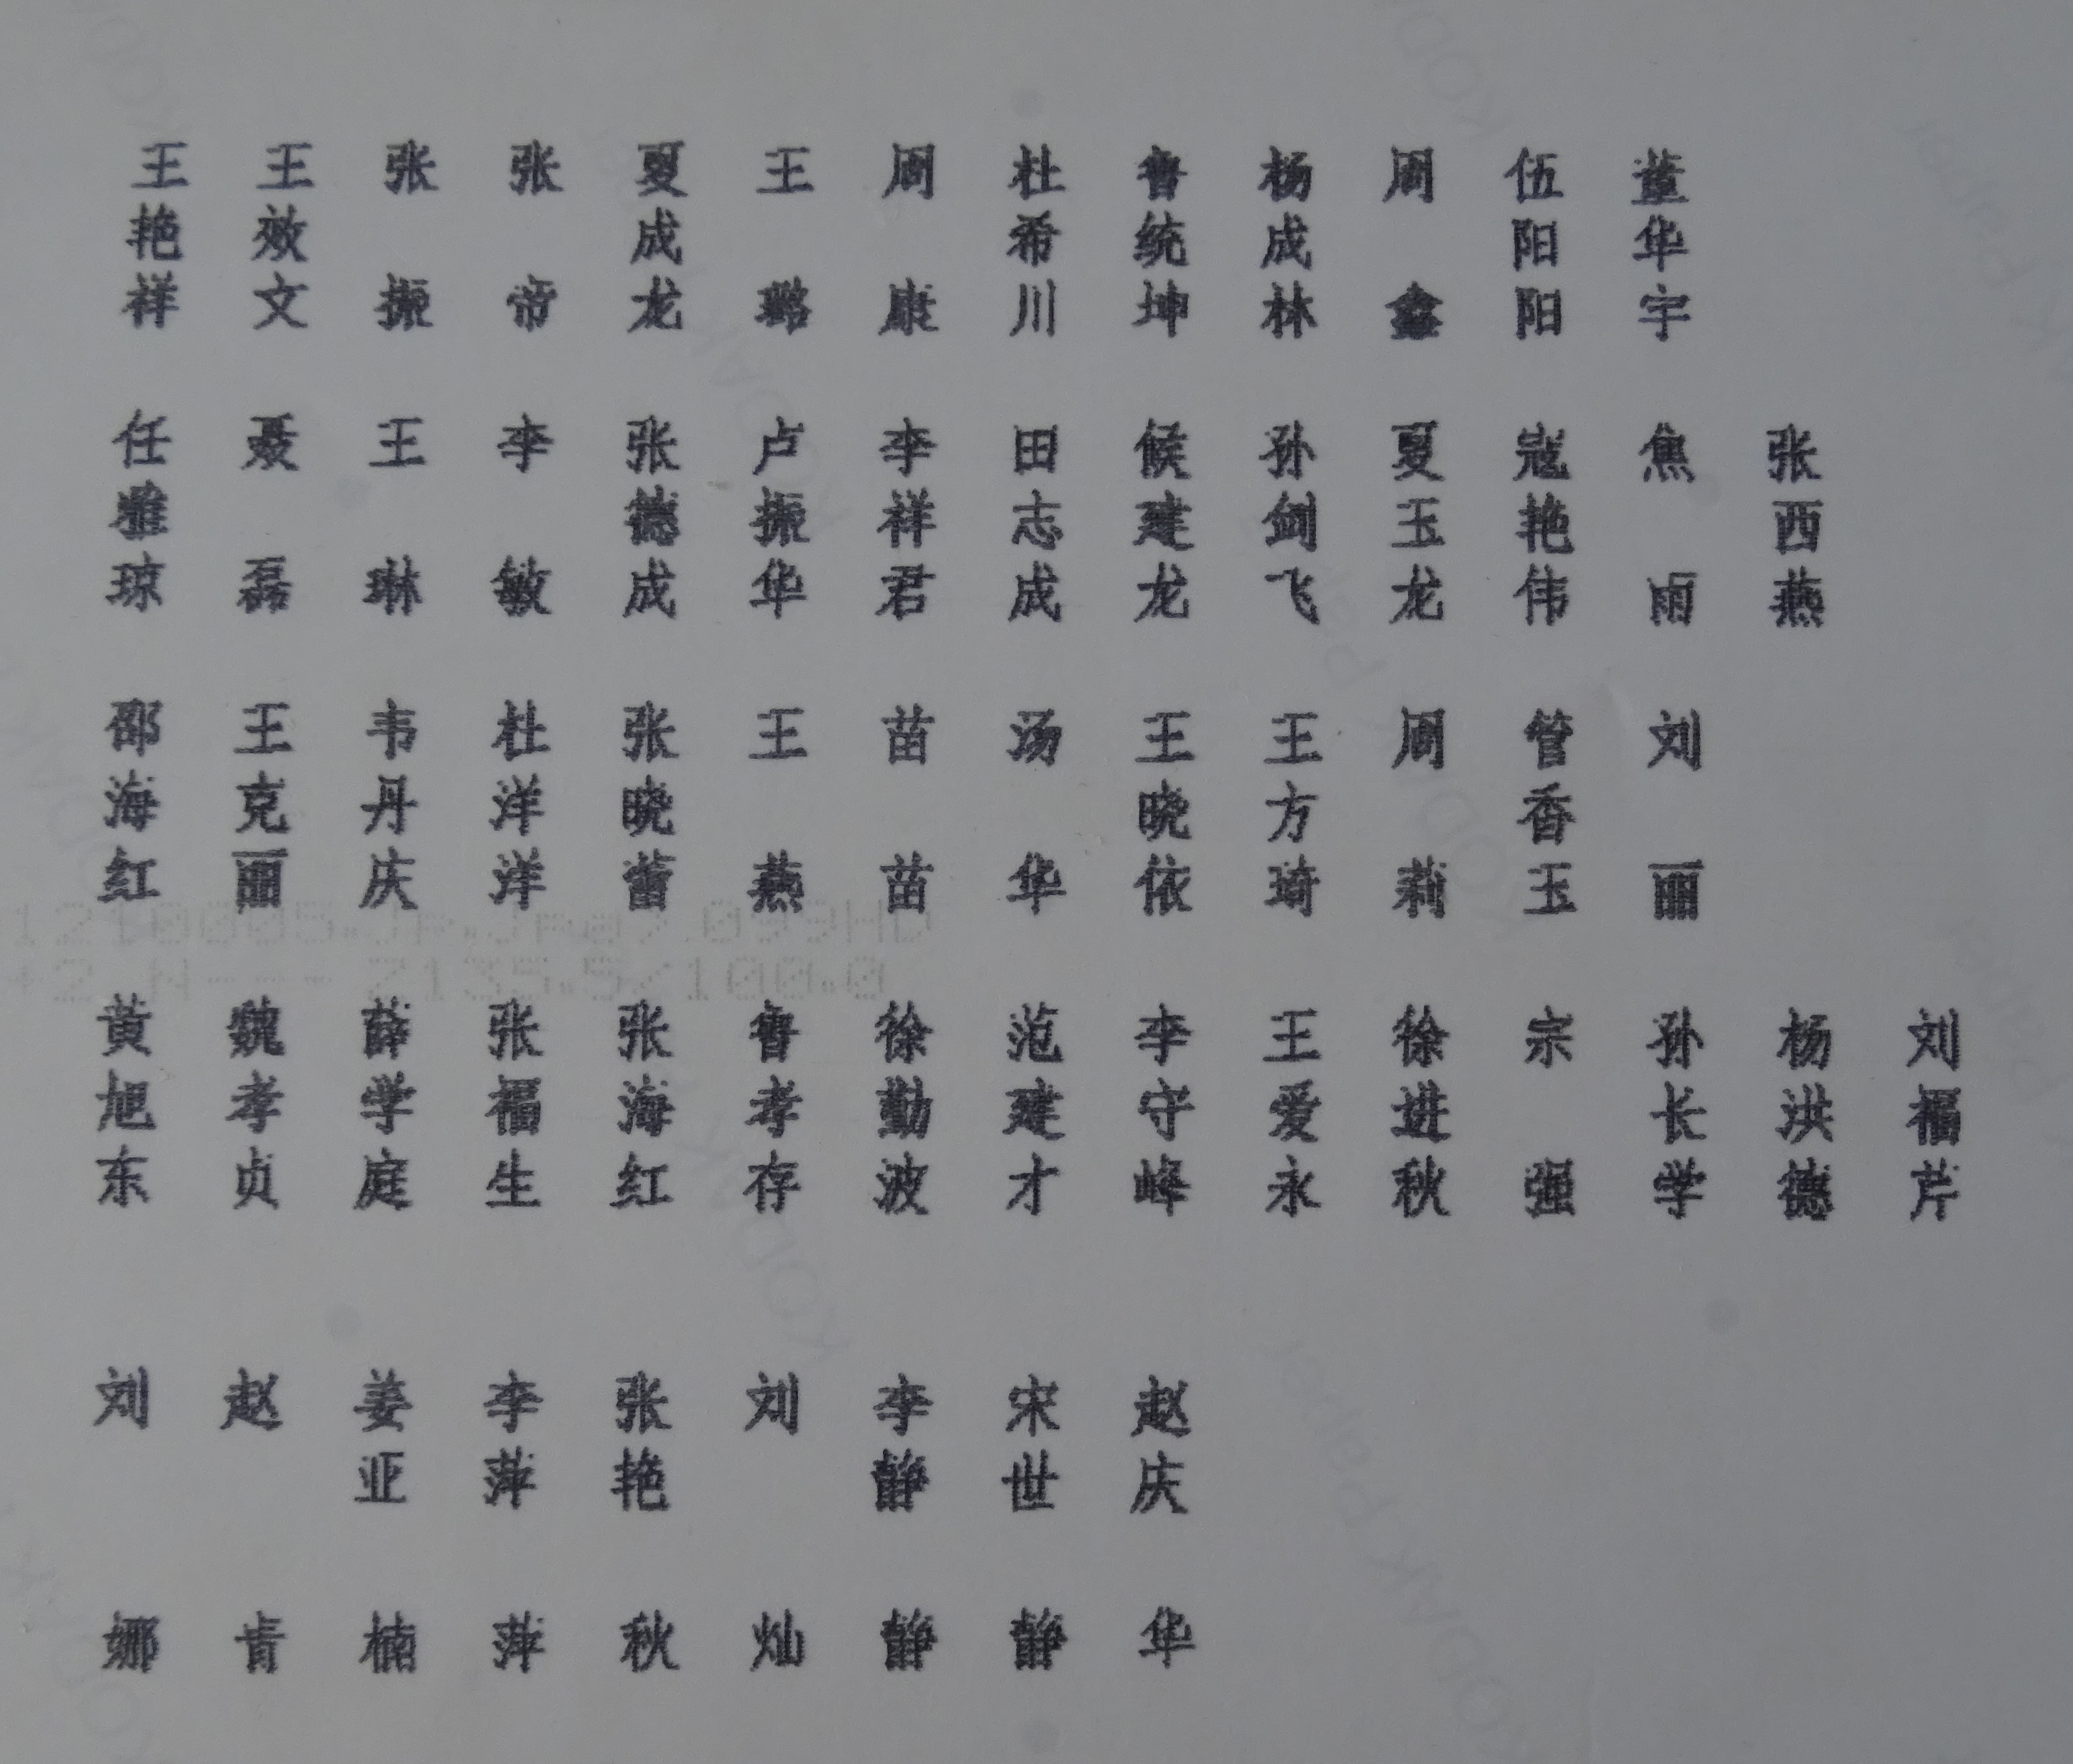 王艳祥 王效文 张振 张帝 夏成龙 王璐 周康 杜希川 鲁统坤 杨成林 周鑫 伍阳阳 董华宇
任雅琼 聂磊 王琳 李敏 张德成 卢振华 李祥君 田志成 候建龙 孙剑飞 夏玉龙 寇艳伟 焦雨 张西燕
邵海红 王克丽 韦丹庆 杜洋洋 张晓蕾 王燕 苗苗 汤华 王晓依 王方琦 周莉 管香玉 刘丽
黄旭东 魏孝贞 薛学庭 张福生 张海红 鲁孝存 徐勤波 范建才 李守峰 王爱永 徐进秋 宗强 孙长学 杨洪德 刘福芹
刘娜 赵肯 姜亚楠 李萍萍 张艳秋 刘灿 李静静 宋世静 赵庆华